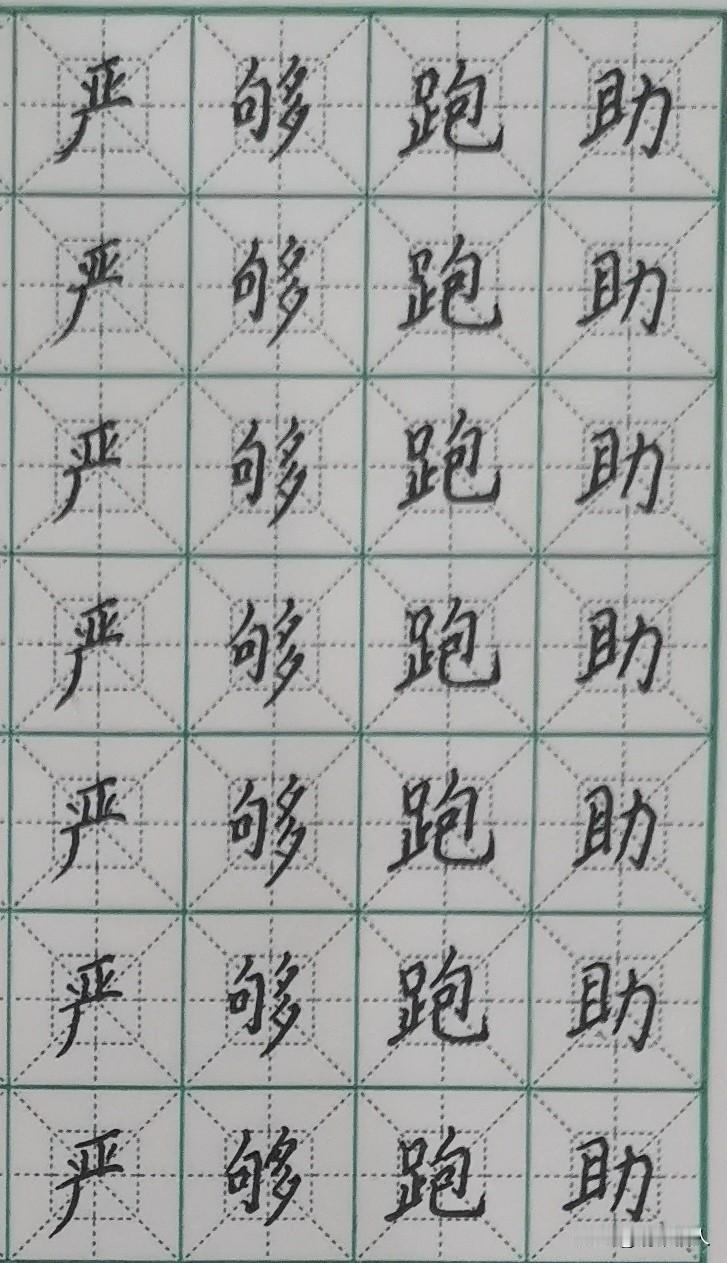 严 够 跑 助
严 够 跑 助
严 够 跑 助
严 够 跑 助
严 够 跑 助
严 够 跑 助
严 够 跑 助